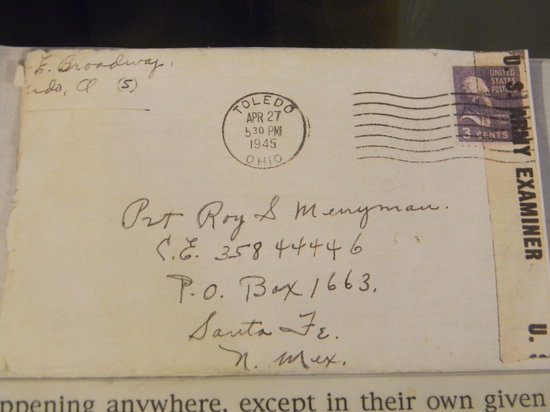 E. Broadway,
do, O (5)
TOLEDO
APR 27
5 30 PM
1945
OHIO
UNITED
STATES
POST
3 CENTS
U.S. ARMY EXAMINER
U.
Pvt Roy S Merryman.
C.E. 358 44446
P.O. Box 1663.
Santa Fe.
N. Mex.
ppening anywhere, except in their own given